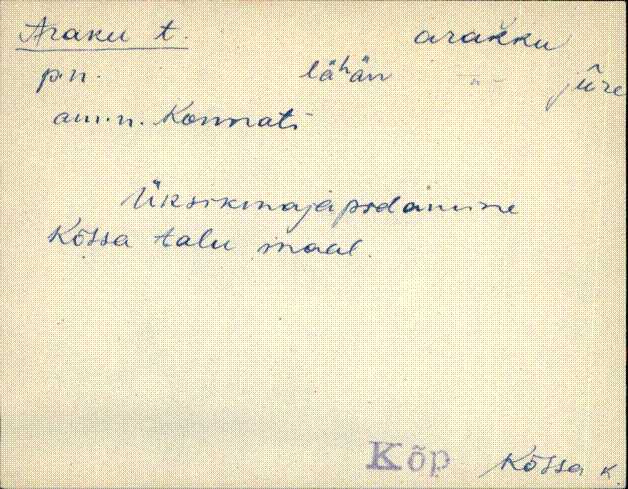 Araku t. arakku
p.n. lähän -"- jūre
am.n. Konnati
Üksikmajapidamine
Kõssa talu maal.
Kõp Kõssa k.